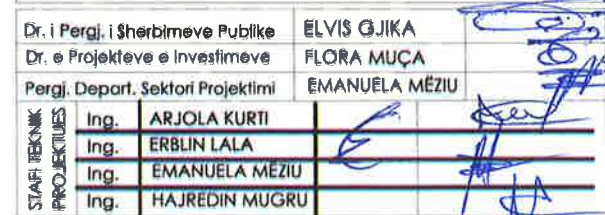 Dr. i Pergj. i Sherbimeve Publike ELVIS GJIKA
Dr. e Projekteve e Investimeve FLORA MUÇA
Pergj. Depart. Sektori Projektimi EMANUELA MËZIU
STAFI TEKNIK
PROJEKTUES
Ing. ARJOLA KURTI
Ing. ERBLIN LALA
Ing. EMANUELA MËZIU
Ing. HAJREDIN MUGRU